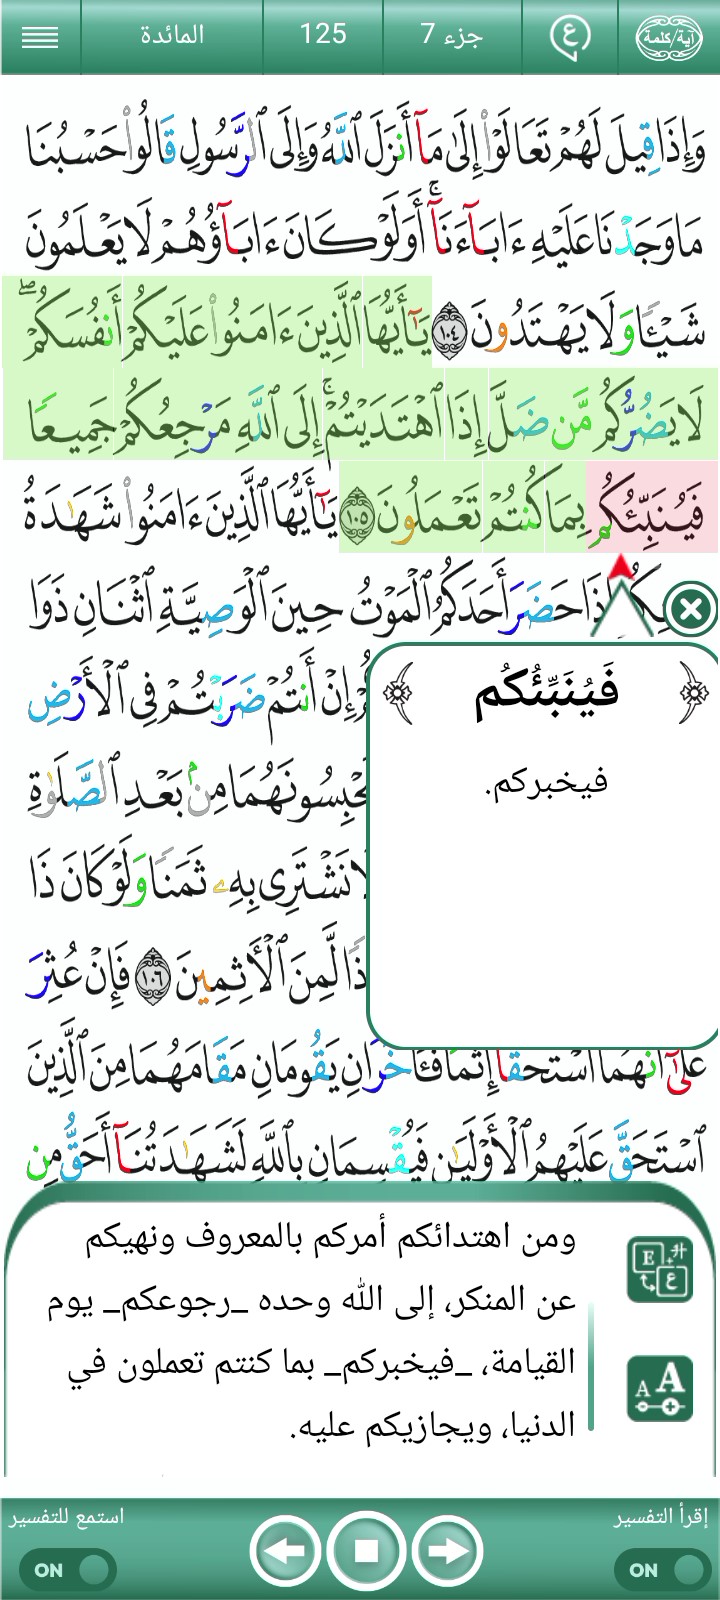 آية/كلمة
ع
جزء 7
125
المائدة
وَإِذَا قِيلَ لَهُمْ تَعَالَوْا۟ إِلَىٰ مَآ أَنزَلَ ٱللَّهُ وَإِلَى ٱلرَّسُولِ قَالُوا۟ حَسْبُنَا
مَا وَجَدْنَا عَلَيْهِ ءَابَآءَنَآ ۚ أَوَلَوْ كَانَ ءَابَآؤُهُمْ لَا يَعْلَمُونَ
شَيْـًٔا وَلَا يَهْتَدُونَ ١٠٤ يَـٰٓأَيُّهَا ٱلَّذِينَ ءَامَنُوا۟ عَلَيْكُمْ أَنفُسَكُمْ ۖ
لَا يَضُرُّكُم مَّن ضَلَّ إِذَا ٱهْتَدَيْتُمْ ۚ إِلَى ٱللَّهِ مَرْجِعُكُمْ جَمِيعًا
فَيُنَبِّئُكُم بِمَا كُنتُمْ تَعْمَلُونَ ١٠٥ يَـٰٓأَيُّهَا ٱلَّذِينَ ءَامَنُوا۟ شَهَـٰدَةُ
إِذَا حَضَرَ أَحَدَكُمُ ٱلْمَوْتُ حِينَ ٱلْوَصِيَّةِ ٱثْنَانِ ذَوَا
إِنْ أَنتُمْ ضَرَبْتُمْ فِى ٱلْأَرْضِ
تَحْبِسُونَهُمَا مِنۢ بَعْدِ ٱلصَّلَوٰةِ
لَا نَشْتَرِى بِهِۦ ثَمَنًا وَلَوْ كَانَ ذَا
لَّمِنَ ٱلْـَٔاثِمِينَ ١٠٦ فَإِنْ عُثِرَ
عَلَىٰٓ أَنَّهُمَا ٱسْتَحَقَّآ إِثْمًا فَـَٔاخَرَانِ يَقُومَانِ مَقَامَهُمَا مِنَ ٱلَّذِينَ
ٱسْتَحَقَّ عَلَيْهِمُ ٱلْأَوْلَيَـٰنِ فَيُقْسِمَانِ بِٱللَّهِ لَشَهَـٰدَتُنَآ أَحَقُّ مِن
فَيُنَبِّئُكُم
فيخبركم.
ومن اهتدائكم أمركم بالمعروف ونهيكم
عن المنكر، إلى الله وحده _رجوعكم_ يوم
القيامة، _فيخبركم_ بما كنتم تعملون في
الدنيا، ويجازيكم عليه.
E ع
A A
إقرأ التفسير
استمع للتفسير
ON
ON